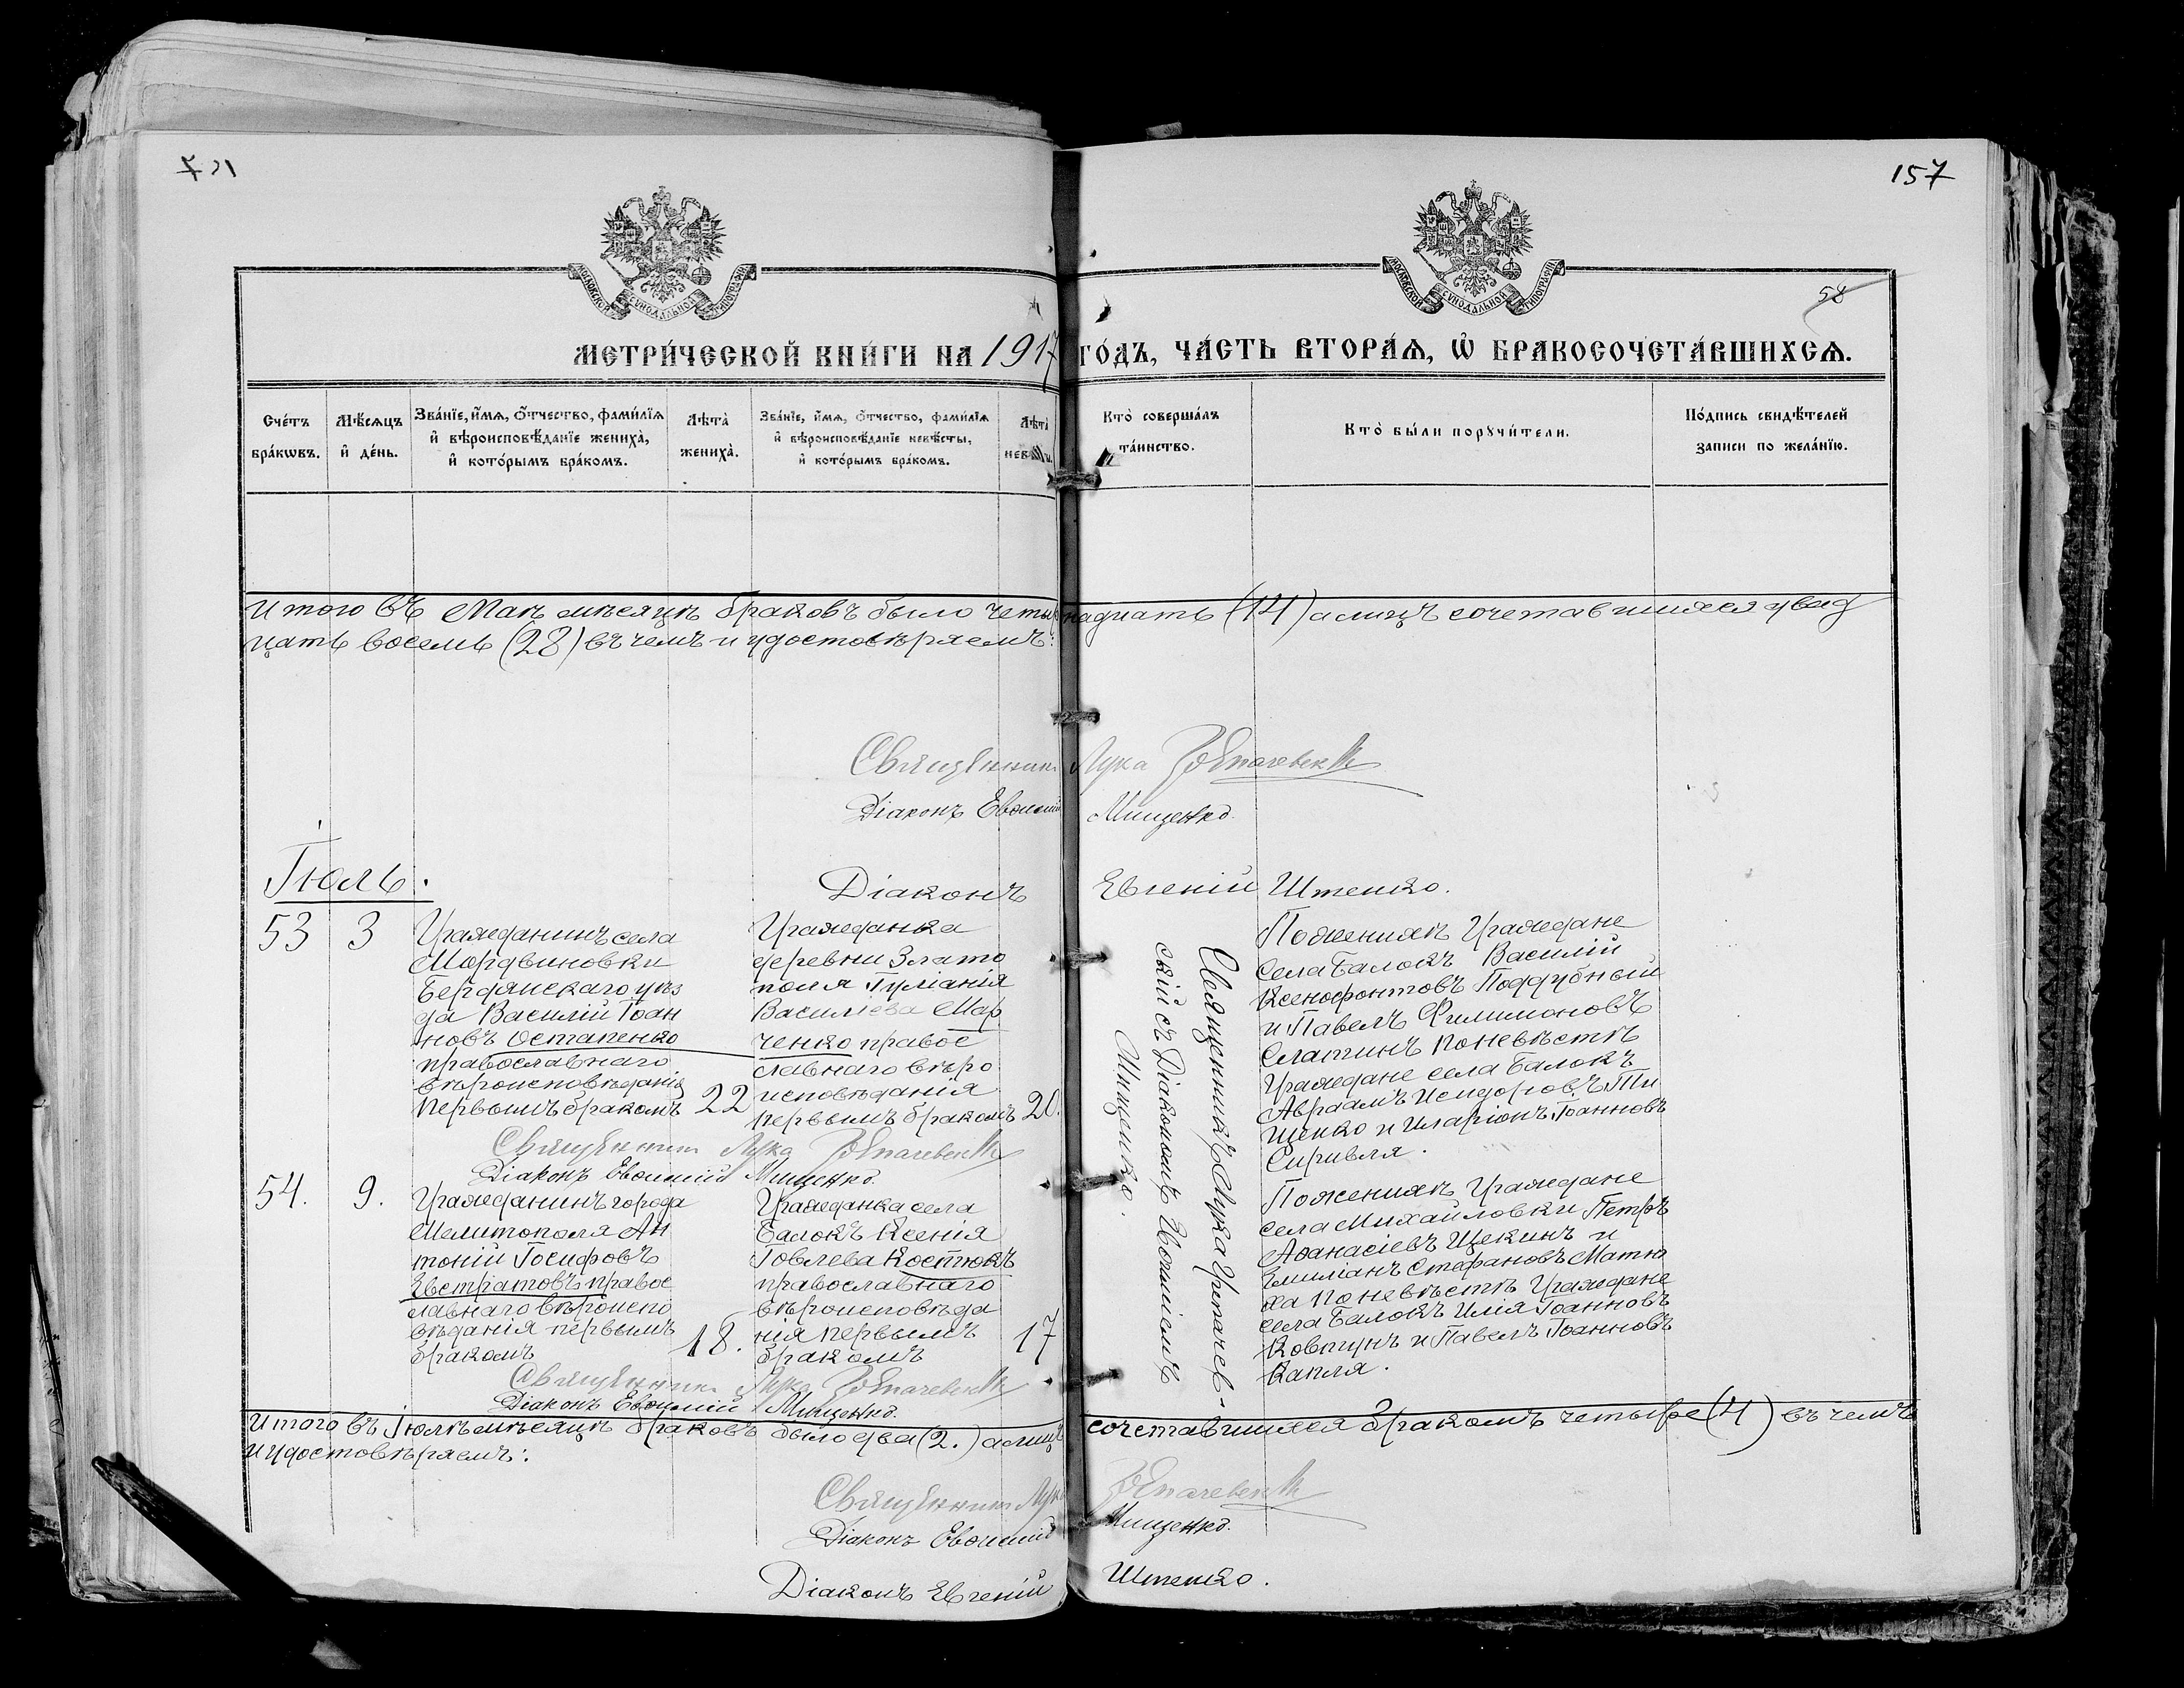 157
58
МЕТРИЧЕСКОЙ КНИГИ НА 1917 ГОДЪ, ЧАСТЬ ВТОРАЯ, Ѡ БРАКОСОЧЕТАВШИХСЯ.
Счетъ браковъ.
Мѣсяцъ и день.
Званіе, имя, отчество, фамилія и вѣроисповѣданіе жениха, и которымъ бракомъ.
Лѣта жениха.
Званіе, имя, отчество, фамилія и вѣроисповѣданіе невѣсты, и которымъ бракомъ.
Лѣта
Кто совершалъ таинство.
Кто были поручители.
Подпись свидѣтелей записи по желанію.
Итого въ Маѣ мѣсяцѣ браковъ было четырнадцать (14) а лицъ сочетавшихся двад
цать восемь (28) въ чемъ и удостовѣряемъ:
Священникъ Лука
Діаконъ Евѳимій Мищенко.
Діаконъ Евгеній Штепко.
Іюль.
53
3
Гражданинъ села
Мордвиновки
Бердянскаго уѣз
да Василій Іоан
новъ Остапенко
православнаго
вѣроисповѣданія
первымъ бракомъ
22
Гражданка
деревни Злато
поля Іуліанія
Василіева Мар
ченко правос
славнаго вѣро
исповѣданія
первымъ бракомъ
20.
Священникъ Лука Гремачев
скій съ Діакономъ Евѳиміемъ
Мищенко.
По женихѣ Граждане
села Балокъ Василій
Ксенофонтовъ Поддубный
и Павелъ Филимоновъ
Слатинъ по невѣстѣ
Граждане села Балокъ
Авраамъ Исидоровъ Ти
щенко и Иларіонъ Іоанновъ
Сиривля.
Священникъ Лука
Діаконъ Евѳимій Мищенко.
54.
9.
Гражданинъ города
Мелитополя Ан
тоній Іосифовъ
Евстратовъ правос
лавнаго вѣроиспо
вѣданія первымъ
бракомъ
18.
Гражданка села
Балокъ Ксенія
Іовлева Костюкъ
православнаго
вѣроисповѣда
нія первымъ
бракомъ
17
По женихѣ Граждане
села Михайловки Петръ
Аѳанасіевъ Щекинъ и
Емиліанъ Стефановъ Матю
ха по невѣстѣ Граждане
села Балокъ Илія Іоанновъ
Ковтунъ и Павелъ Іоанновъ
Капля.
Священникъ Лука
Діаконъ Евѳимій Мищенко.
Итого въ Іюлѣ мѣсяцѣ браковъ было два (2.) а лицъ сочетавшихся бракомъ четыре (4) въ чемъ
и удостовѣряемъ:
Священникъ Лука
Діаконъ Евѳимій Мищенко.
Діаконъ Евгеній Штепко.